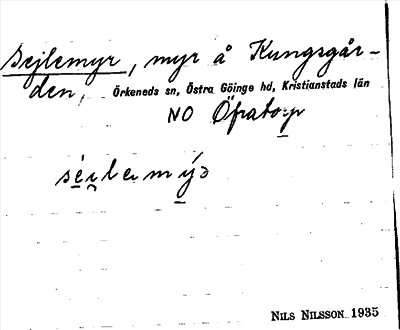 Sejlemyr, myr å Kungsgår-
den, Örkeneds sn, Östra Göinge hd, Kristianstads län
NO Öfratorp
NILS NILSSON 1935